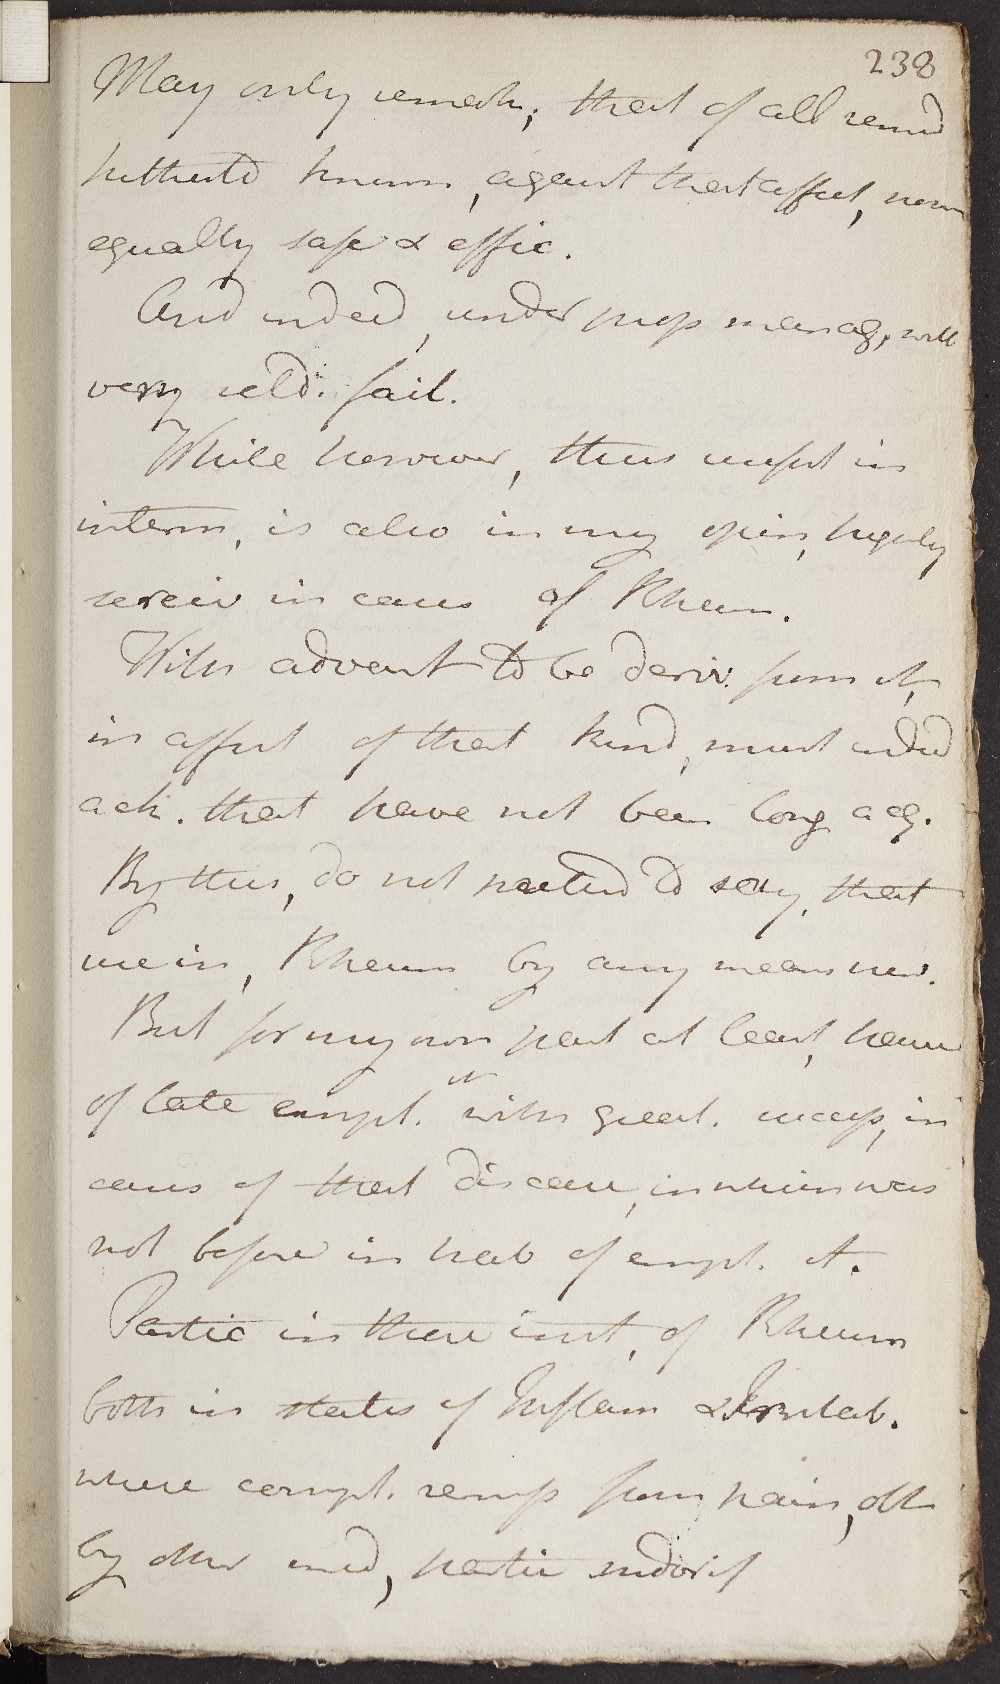 238
May only remark, that of all remed
hitherto known, against that affect, none
equally safe & effic.
And indeed, under prop manag, will
very seld. fail.
While however, thus usefull in
interm, is also in my opin, highly
servic in cases of Rheum.
With advant to be deriv. from it,
in affect of that kind, must indeed
ack. that have not been long acq.
By this, do not pretend to say, that
use in, Rheum by any means new.
But for my own part at least, have
of late empl. it with great. success, in
cases of that disease, in which was
not before in hab of empl. it.
Partic in those inst, of Rheum
both in states of Inflam & Irritab.
where compl. remiss from pain, obt
by other med, partic sudorif